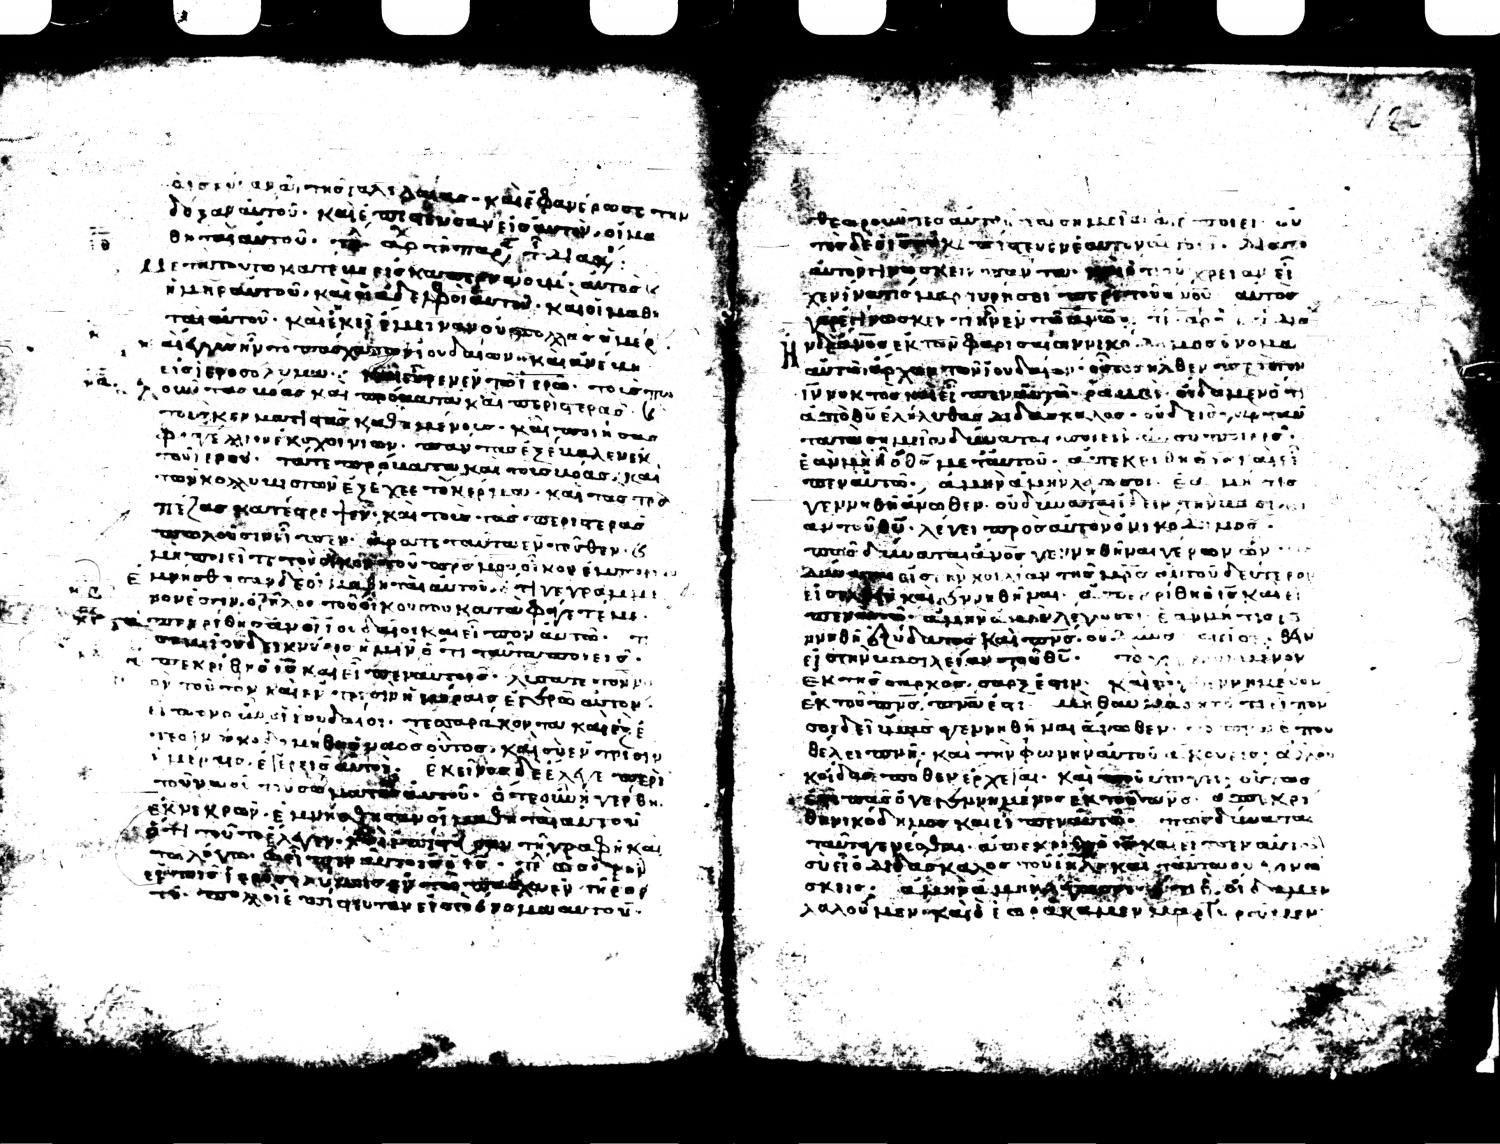 ὁ ισ ἐν κανᾶ τῆσ γαλιλαίασ · καὶ ἐφανέρωσε τὴν
δόξαν αὐτοῦ · καὶ ἐπίστευσαν εἰσ αὐτὸν, οἱ μα
θηταὶ αὐτοῦ ·
Μετὰ τοῦτο κατέβη εἰσ καπερναούμ · αὐτὸσ κ
ἡ μηρ αὐτοῦ · καὶ οἱ ἀδελφοὶ αὐτοῦ · καὶ οἱ μαθη
ταὶ αὐτοῦ · καὶ ἐκεῖ ἔμειναν οὐ πολλὰσ ἡμέρ
ἐγγὺσ ἦν τὸ πάσχα τῶν ἰουδαίων · καὶ ἀνέβη
εἰσ ἱεροσόλυμα · καὶ εὗρεν ἐν τῶ ἱερῶ · τοὺσ πω
βόασ καὶ πρόβατα καὶ περιστερὰσ · κ
τοὺσ κερματιστὰσ καθημένουσ · καὶ ποιήσασ
φραγέλλιον ἐκ σχοινίων · πάντασ ἐξέβαλεν ἐκ
τοῦ ἱεροῦ · τά τε πρόβατα καὶ τοὺσ βόασ · καὶ
τῶν κολλυβιστῶν ἐξέχεε τὸ κέρμα · καὶ τὰσ τρα
πέζασ κατέστρεψεν · καὶ τοῖσ τὰσ περιστερὰσ
πωλοῦσιν εἶπεν · ἄρατε ταῦτα ἐντεῦθεν · κ
μὴ ποιεῖτε τὸν οἶκον τοῦ πρσ μου οἶκον ἐμπορίου
Ἐμνήσθησαν δὲ οἱ μαθηταὶ αὐτοῦ · ὅτι γεγραμμέ
νον ἐστὶν · ὁ ζῆλοσ τοῦ οἴκου σου καταφάγεταί με ·
ἀπεκρίθησαν οἱ ἰουδαῖοι καὶ εἶπον αὐτῶ · τί
σημεῖον δεικνύεισ ἡμῖν ὅτι ταῦτα ποιεῖσ ·
ἀπεκρίθη ὁ ισ καὶ εἶπεν αὐτοῖσ · λύσατε τὸν να
ὸν τοῦτον καὶ ἐν τρισὶν ἡμέραισ ἐγερῶ αὐτόν ·
εἶπον οὖν οἱ ἰουδαῖοι · τεσσαράκοντα καὶ ἓξ ἔ
τεσιν ὠκοδομήθη ὁ ναὸσ οὗτοσ · καὶ σὺ ἐν τρισὶν
ἡμέραισ ἐγερεῖσ αὐτόν · ἐκεῖνοσ δὲ ἔλεγε περὶ
τοῦ ναοῦ τοῦ σώματοσ αὐτοῦ · ὅτε οὖν ἠγέρθη
ἐκ νεκρῶν · ἐμνήσθησαν οἱ μαθηταὶ αὐτοῦ
ὅτι τοῦτο ἔλεγεν · καὶ ἐπίστευσαν τῆ γραφῆ καὶ
τῶ λόγω ὃν εἶπεν αὐτοῖσ ὁ ισ · ὡσ δὲ ἦν
ἐν τοῖσ ἱεροσολύμοισ ἐν τῶ πάσχα ἐν τῆ ἑορ
τῆ · πολλοὶ ἐπίστευσαν εἰσ τὸ ὄνομα αὐτοῦ ·
12
θεωροῦντεσ αὐτοῦ τὰ σημεῖα ἃ ἐποίει · αὐ
τὸσ δὲ ὁ ισ οὐκ ἐπίστευεν ἑαυτὸν αὐτοῖσ · διὰ τὸ
αὐτὸν γινώσκειν πάντασ · καὶ ὅτι οὐ χρείαν εἶ
χεν ἵνα τισ μαρτυρήση περὶ τοῦ ανου · αὐτὸσ
γὰρ ἐγίνωσκεν τί ἦν ἐν τῶ ανω ·
Ἦν δὲ ανοσ ἐκ τῶν φαρισαίων νικόδημοσ ὄνομα
αὐτῶ ἄρχων τῶν ἰουδαίων · οὗτοσ ἦλθεν πρὸσ τὸν
ιν νυκτὸσ καὶ εἶπεν αὐτῶ · ραββὶ οἴδαμεν ὅτι
ἀπὸ θυ ἐλήλυθασ διδάσκαλοσ · οὐδεὶσ γὰρ ταῦ
τα τὰ σημεῖα δύναται ποιεῖν ἃ σὺ ποιεῖσ ·
ἐὰν μὴ ἦ ὁ θσ μετ αὐτοῦ · ἀπεκρίθη ὁ ισ καὶ εἶ
πεν αὐτῶ · ἀμὴν ἀμὴν λέγω σοι · ἐὰν μή τισ
γεννηθῆ ἄνωθεν · οὐ δύναται ἰδεῖν τὴν βασιλεί
αν τοῦ θυ · λέγει πρὸσ αὐτὸν ὁ νικόδημοσ ·
πῶσ δύναται ανοσ γεννηθῆναι γέρων ὢν ·
δύναται εἰσ τὴν κοιλίαν τῆσ μρσ αὐτοῦ δεύτερον
εἰσελθεῖν καὶ γεννηθῆναι · ἀπεκρίθη ὁ ισ καὶ εἶ
πεν αὐτῶ · ἀμὴν ἀμὴν λέγω σοι · ἐὰν μή τισ γε
ννηθῆ ἐξ ὕδατοσ καὶ πνσ · οὐ δύναται εἰσελθεῖν
εἰσ τὴν βασιλείαν τοῦ θυ · τὸ γεγεννημένον
ἐκ τῆσ σαρκὸσ, σάρξ ἐστιν · καὶ τὸ γεγεννημένον
ἐκ τοῦ πνσ, πνα ἐστι · μὴ θαυμάσησ ὅτι εἶπον
σοι δεῖ ὑμᾶσ γεννηθῆναι ἄνωθεν · τὸ πνα ὅπου
θέλει πνεῖ · καὶ τὴν φωνὴν αὐτοῦ ἀκούεισ · ἀλλ οὐ
κ οἶδασ πόθεν ἔρχεται · καὶ ποῦ ὑπάγει · οὕτωσ
ἐστὶ πᾶσ ὁ γεγεννημένοσ ἐκ τοῦ πνσ · ἀπεκρί
θη νικόδημοσ καὶ εἶπεν αὐτῶ · πῶσ δύναται
ταῦτα γενέσθαι · ἀπεκρίθη ὁ ισ καὶ εἶπεν αὐτῶ
σὺ εἶ ὁ διδάσκαλοσ τοῦ ιηλ καὶ ταῦτα οὐ γινώ
σκεισ · ἀμὴν ἀμὴν λέγω σοι ὅτι ὃ οἴδαμεν
λαλοῦμεν · καὶ ὃ ἑωράκαμεν μαρτυροῦμεν